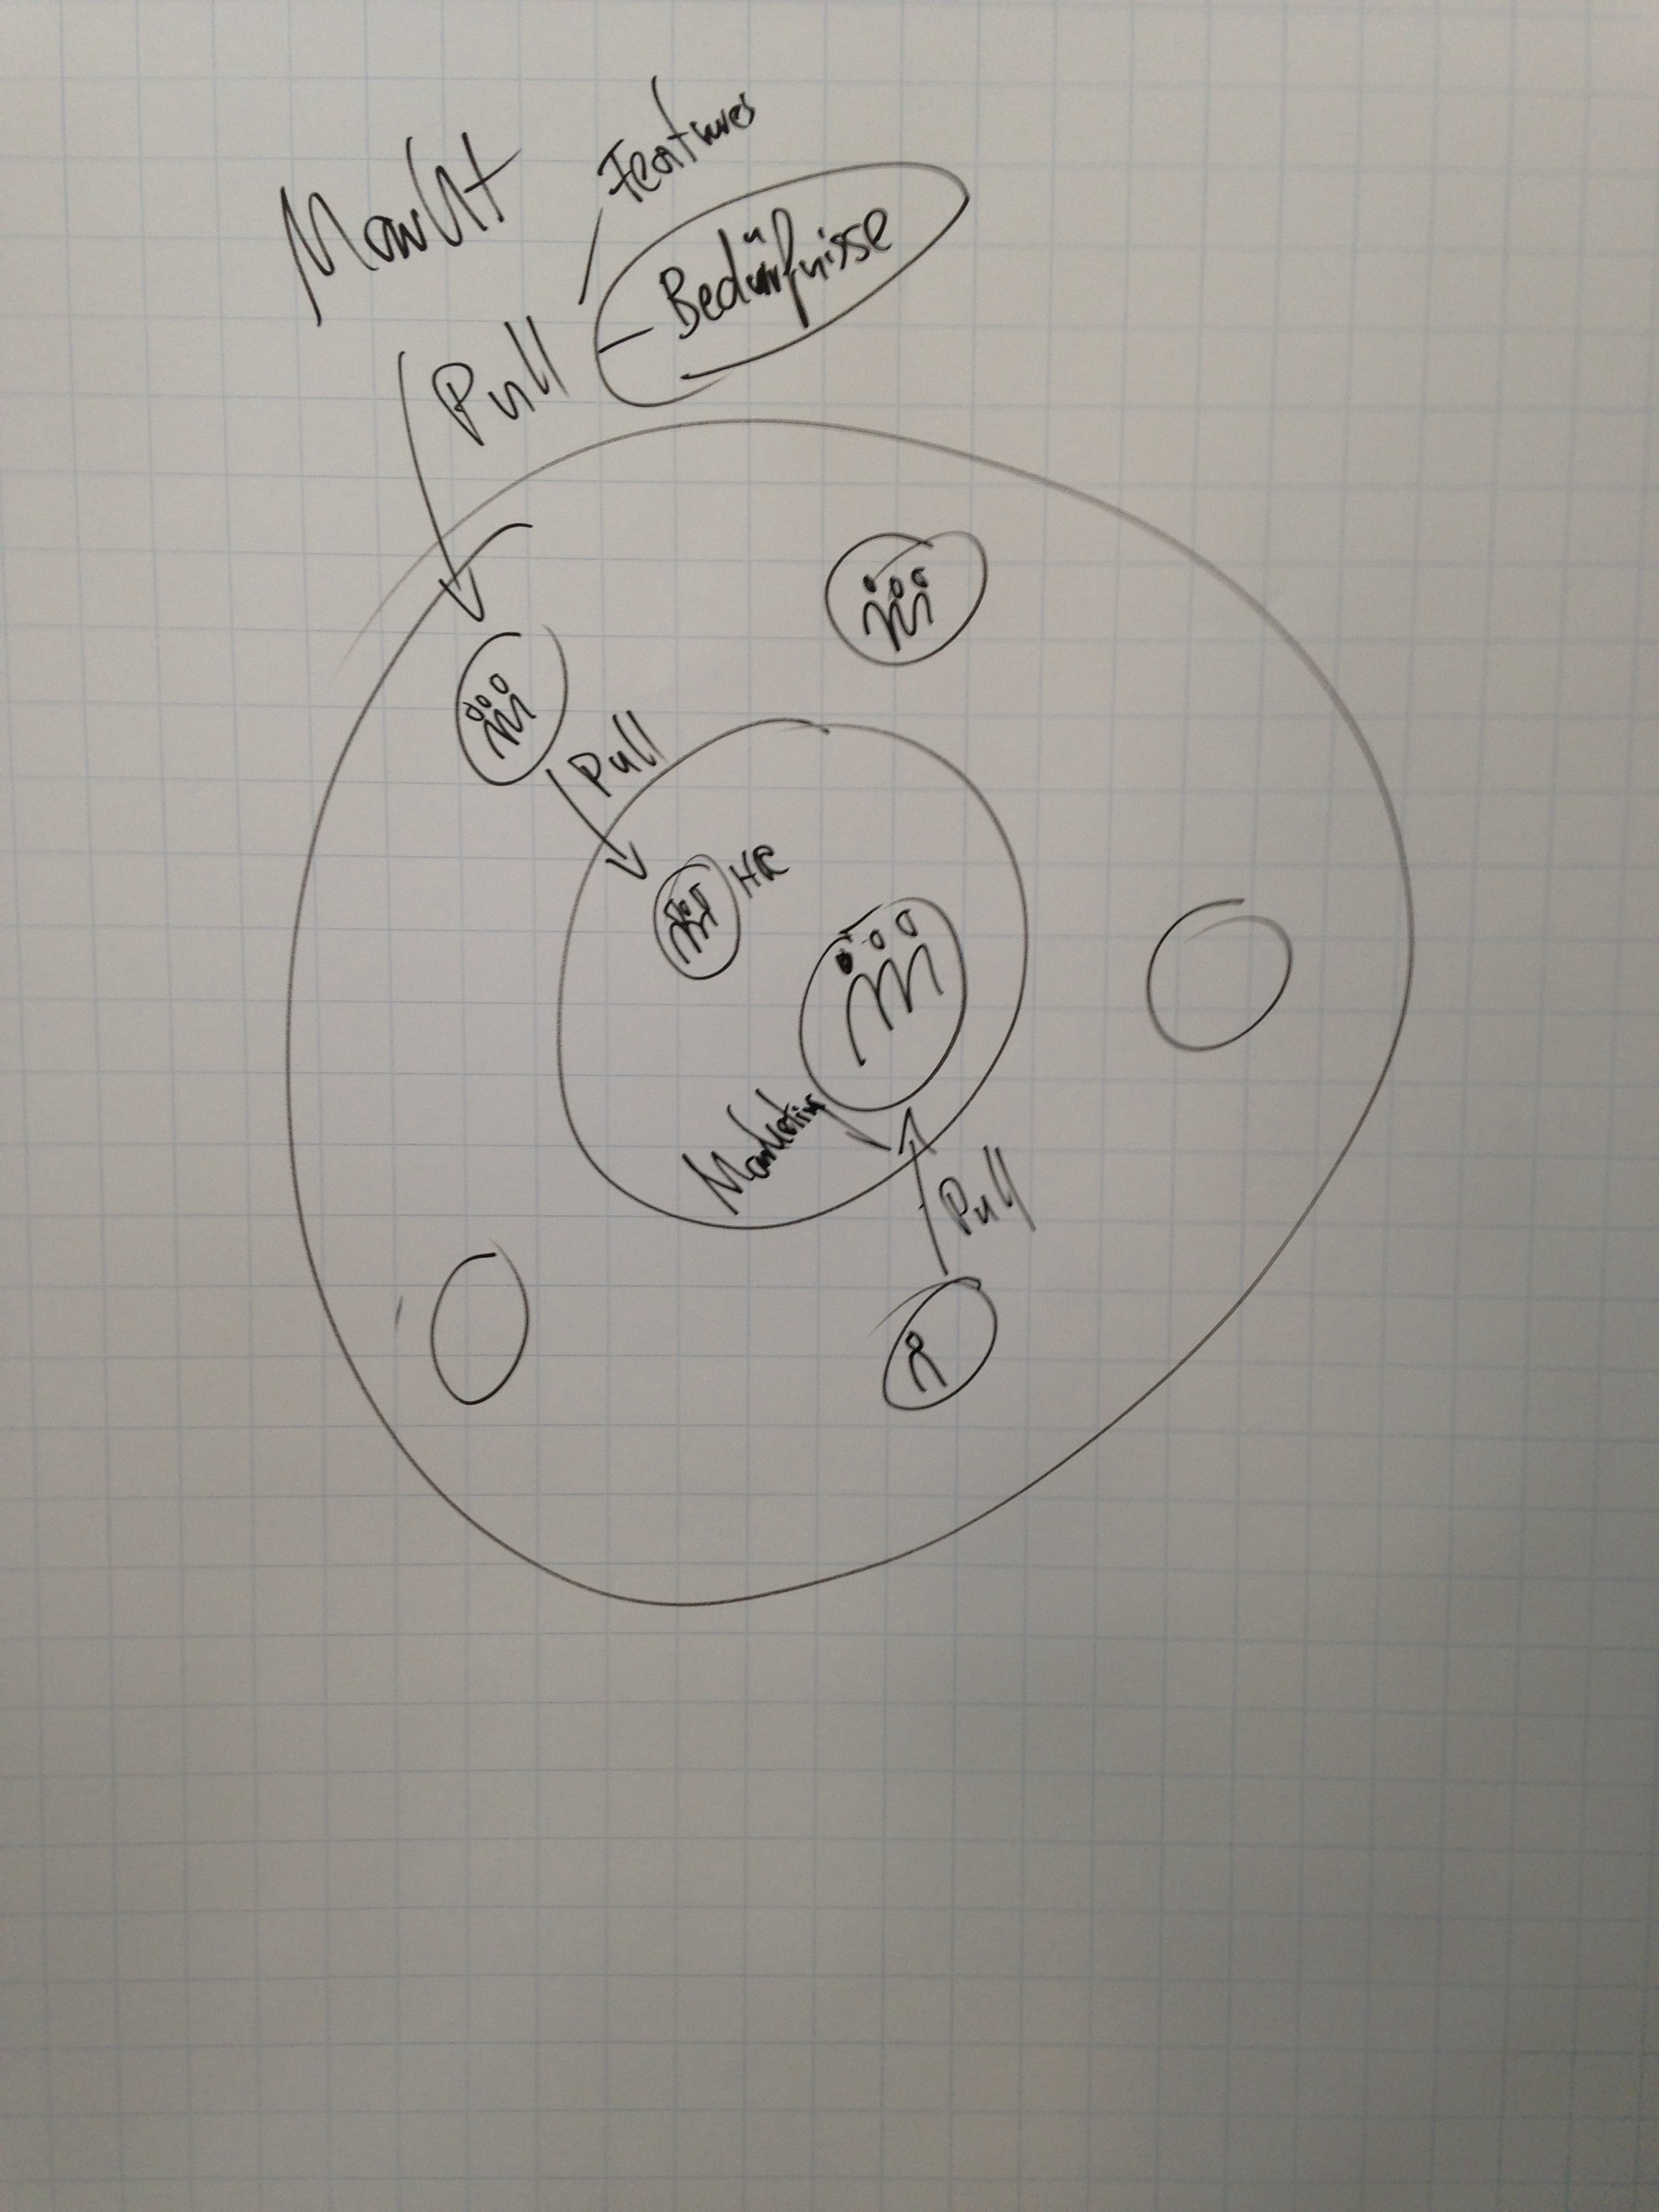 Markt
Features
Pull
- Bedürfnisse
Pull
HR
Marketing
Pull